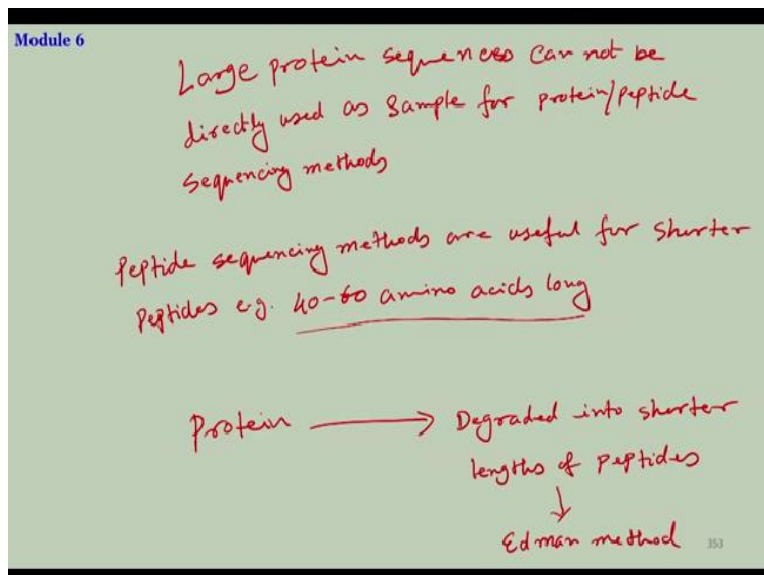 Module 6
Large protein sequences can not be
directly used as sample for protein/peptide
sequencing methods
Peptide sequencing methods are useful for shorter
peptides e.g. 40-60 amino acids long
Protein → Degraded into shorter
lengths of peptides
↓
Edman method
353